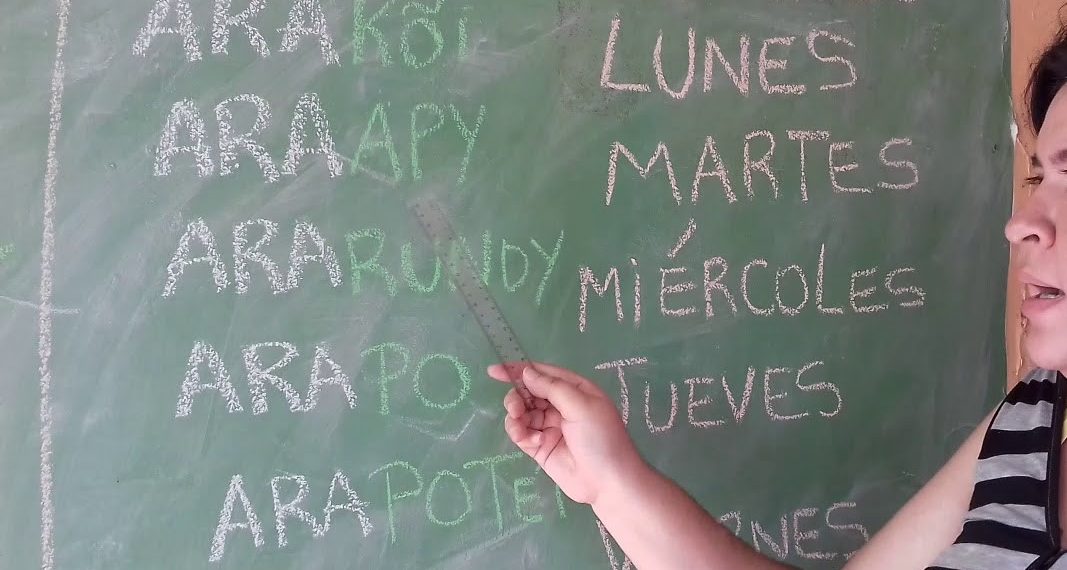 ARA KÕI LUNES
ARA APY MARTES
ARA RUNDY MIÉRCOLES
ARA PO JUEVES
ARA POTEĨ